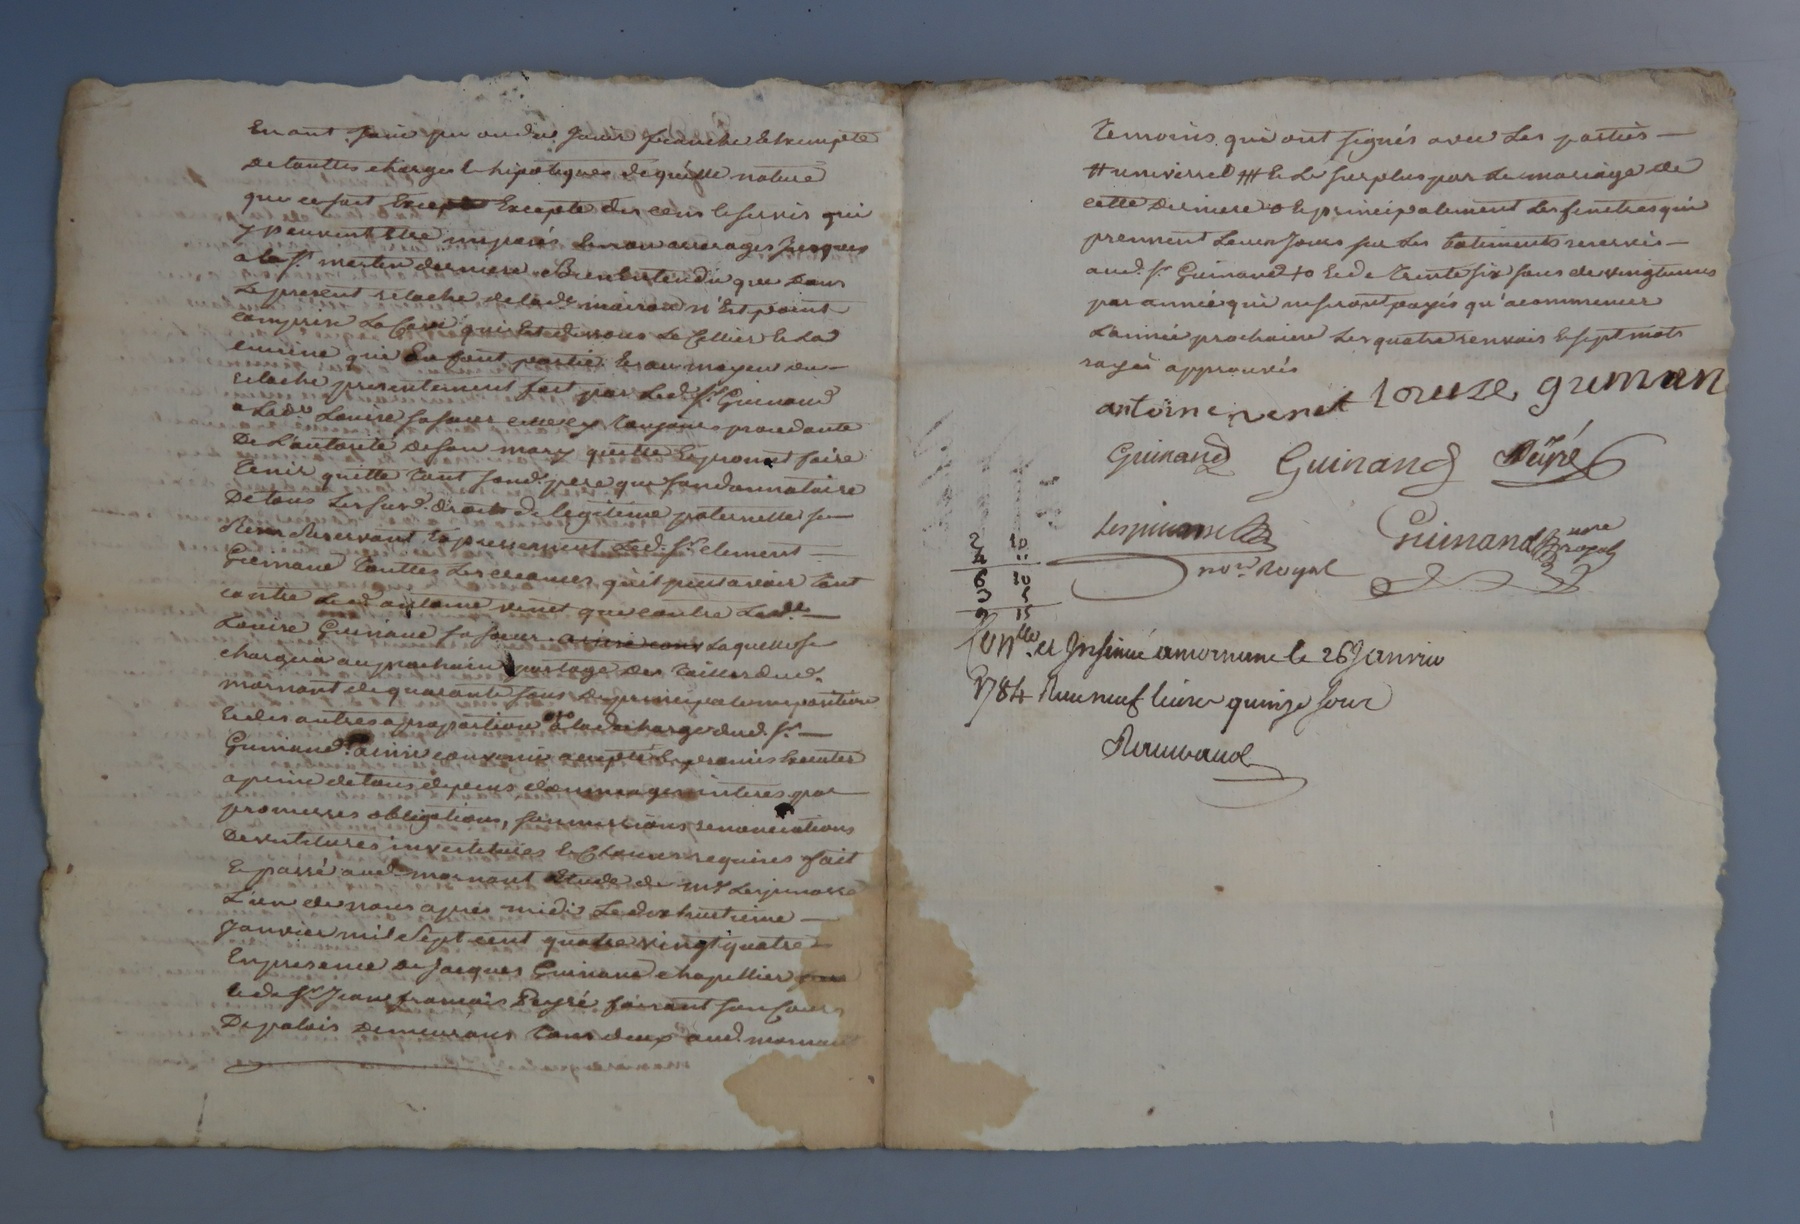 En ont jouir franche et exempte
de touttes charges et hipoteques de quelle nature
que ce soit Excepté des cens et servis qui
y peuvent Etre imposés arrerages jusques
a la St martin derniere Bien Entendu que dans
Le present relache de lad. maison n'Est point
comprise La Cave qui Est dessous Le Cellier et La
cuisine qui En font partie, Et au moyen du
relaché presentement fait par Led. Sr. Guinand
a Lad. Louise sa soeur toujours procedante
De L'autorité de son mary quitte Et promet faire
Tenir quitte Tant sond. pere que son donnataire
De tous Les susd. droits de legitime paternelle se
Reservant Expressement Led. Sr. clement
Guinand Touttes Les creances qu'il peut avoir Tant
contre Led. antoine venet que contre Lade.
Louise Guinand sa soeur Laquelle se
chargera au prochain partage des Tailles dud.
mornant de quarante sous De principale imposition
Et des autres a proportion a la decharge dud. Sr.
Guinand. ainsi convenu accepté Et promis Executer
a peine de tous depens dommages interes par
promesses obligations, soumissions renonciations
Devestitures investitures Et Clauses requises fait
Et passé aud. mornant Etude de me. Lespinasse
L'un de nous apres midi Le dix huitieme
Janvier mil Sept cent quatre vingt quatre
En presence de Jacques Guinand chapellier
et de Sr. Jean francois Peyré faisant son Cours
De palais Demeurans Tous deux aud. mornant
Temoins qui ont signés avec Les parties
# universel # Et Le surplus par Le mariage de
cette Derniere o Et principalement Les fenetres qui
prennent Leurs Jours sur Les batiments reservés
aud. Sr. Guinand +o Et de Trente six sous de vingtiemes
par année qui ne seront payés qu'a commencer
L'année prochaine Les quatre renvois Et sept mots
rayés approuvés
antoine venet Louize guinan
Guinand Guinand Peyré
Lespinasse
nore. Royal
Guinand
nore royal
2 10
4 "
6 10
3 5
9 15
Conlle. et Insinué a mornant le 26 Janvier
1784 Recu neuf livres quinze sous